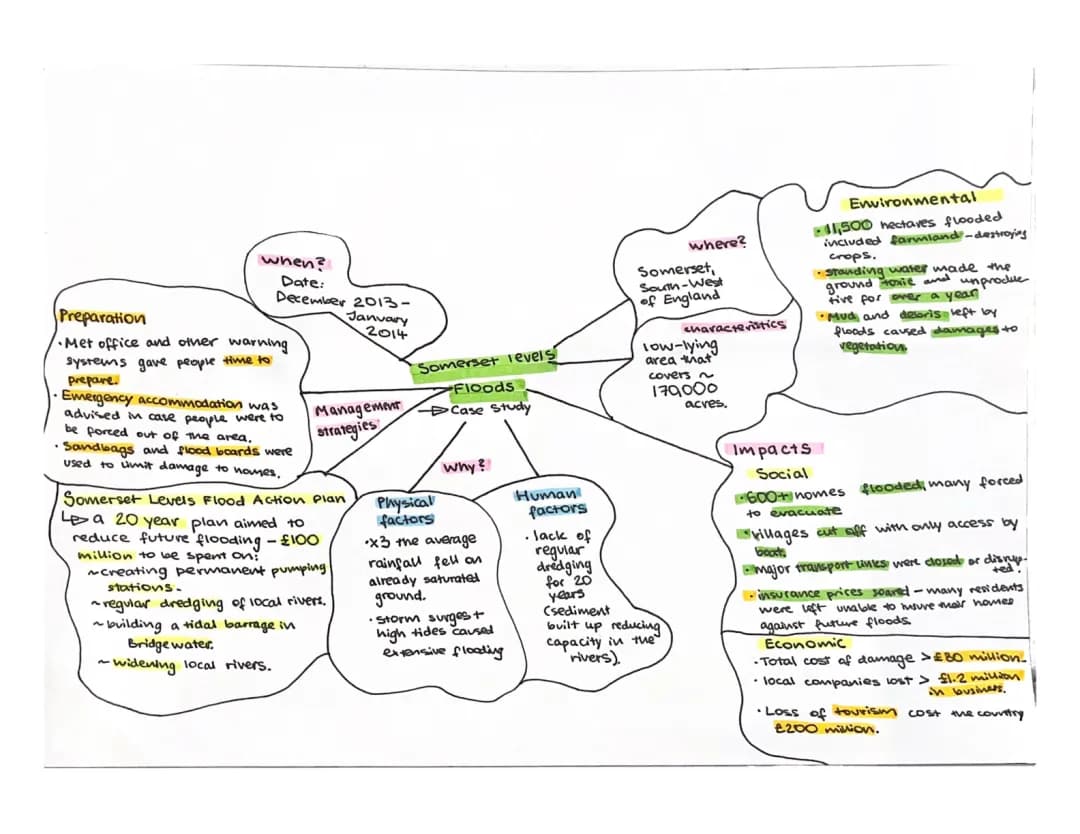 Somerset levels
Floods
→ Case Study
When?
Date:
December 2013-
January
2014
where?
Somerset,
South-West
of England
characteristics
low-lying
area that
covers ~
170,000
acres.
Environmental
· 11,500 hectares flooded
included farmland - destroying
crops.
· standing water made the
ground toxic and unproduc-
tive for over a year
· Mud and debris left by
floods caused damages to
vegetation.
Impacts
Social
· 600+ homes flooded, many forced
to evacuate
· Villages cut off with only access by
boat.
· Major transport links were closed or disrup-
ted.
· insurance prices soared - many residents
were left unable to insure their homes
against future floods.
Economic
· Total cost of damage > £80 million.
· local companies lost > £1.2 million
in business.
· Loss of tourism cost the country
£200 million.
Why?
Physical
factors
· x3 the average
rainfall fell on
already saturated
ground.
· storm surges +
high tides caused
extensive flooding
Human
factors
· lack of
regular
dredging
for 20
years
(sediment
built up reducing
capacity in the
rivers).
Management
strategies
Preparation
· Met office and other warning
systems gave people time to
prepare.
· Emergency accommodation was
advised in case people were to
be forced out of the area.
· Sandbags and flood boards were
used to limit damage to homes.
Somerset Levels Flood Action Plan
↳ a 20 year plan aimed to
reduce future flooding - £100
million to be spent on:
~ creating permanent pumping
stations.
~ regular dredging of local rivers.
~ building a tidal barrage in
Bridgewater.
~ widening local rivers.